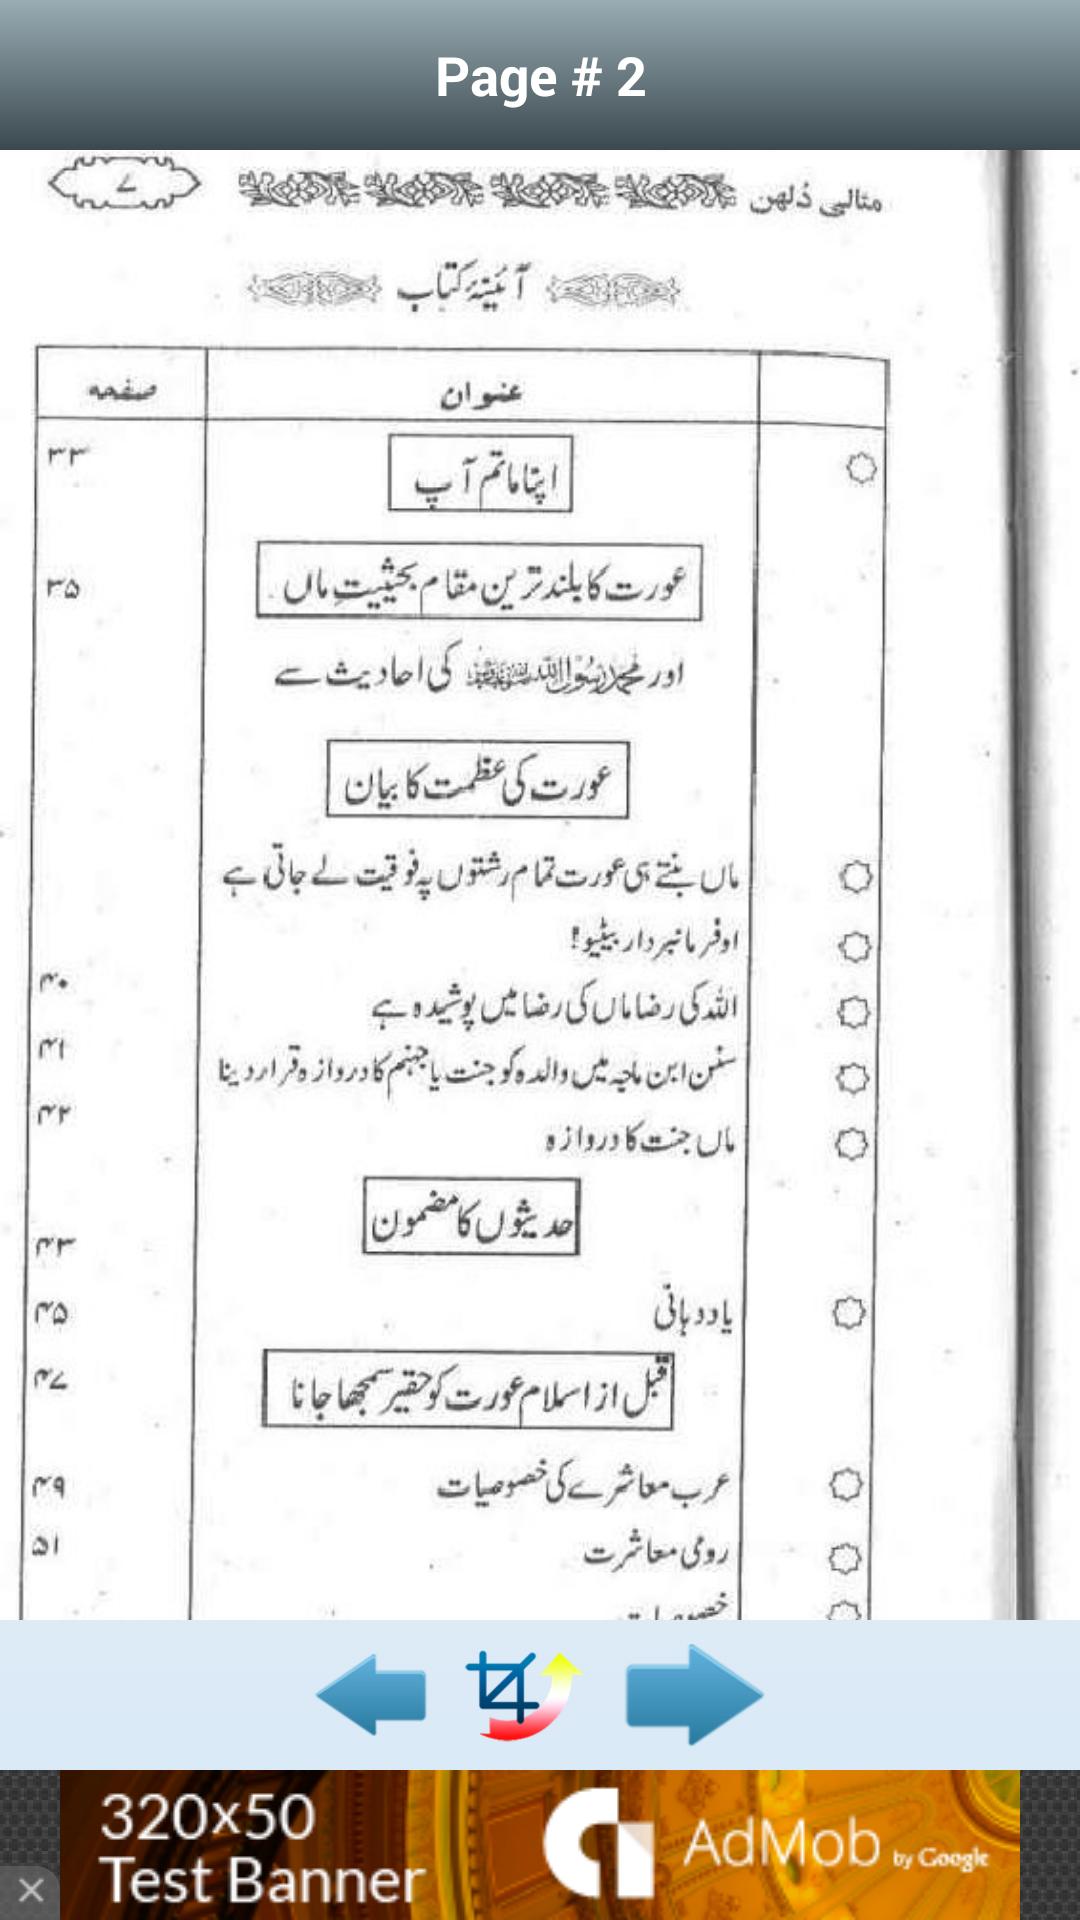 Page # 2
مثالی دُلہن ۷
آئینۂ کتاب
عنوان صفحہ
اپنا ماتم آپ ۳۳
عورت کا بلند ترین مقام بحیثیتِ ماں ۳۵
اور محمد رسول اللہ ﷺ کی احادیث سے
عورت کی عظمت کا بیان
ماں بنتے ہی عورت تمام رشتوں پہ فوقیت لے جاتی ہے
اوفرمانبردار بیٹیو!
۴۰
اللہ کی رضا ماں کی رضا میں پوشیدہ ہے
۴۱
سنن ابن ماجہ میں والدہ کو جنت یا جہنم کا دروازہ قرار دینا
۴۲
ماں جنت کا دروازہ
حدیثوں کا مضمون
۴۳
یاددہانی ۴۵
قبل از اسلام عورت کو حقیر سمجھا جانا ۴۷
عرب معاشرے کی خصوصیات ۴۹
رومی معاشرت ۵۱
320x50
Test Banner
AdMob by Google